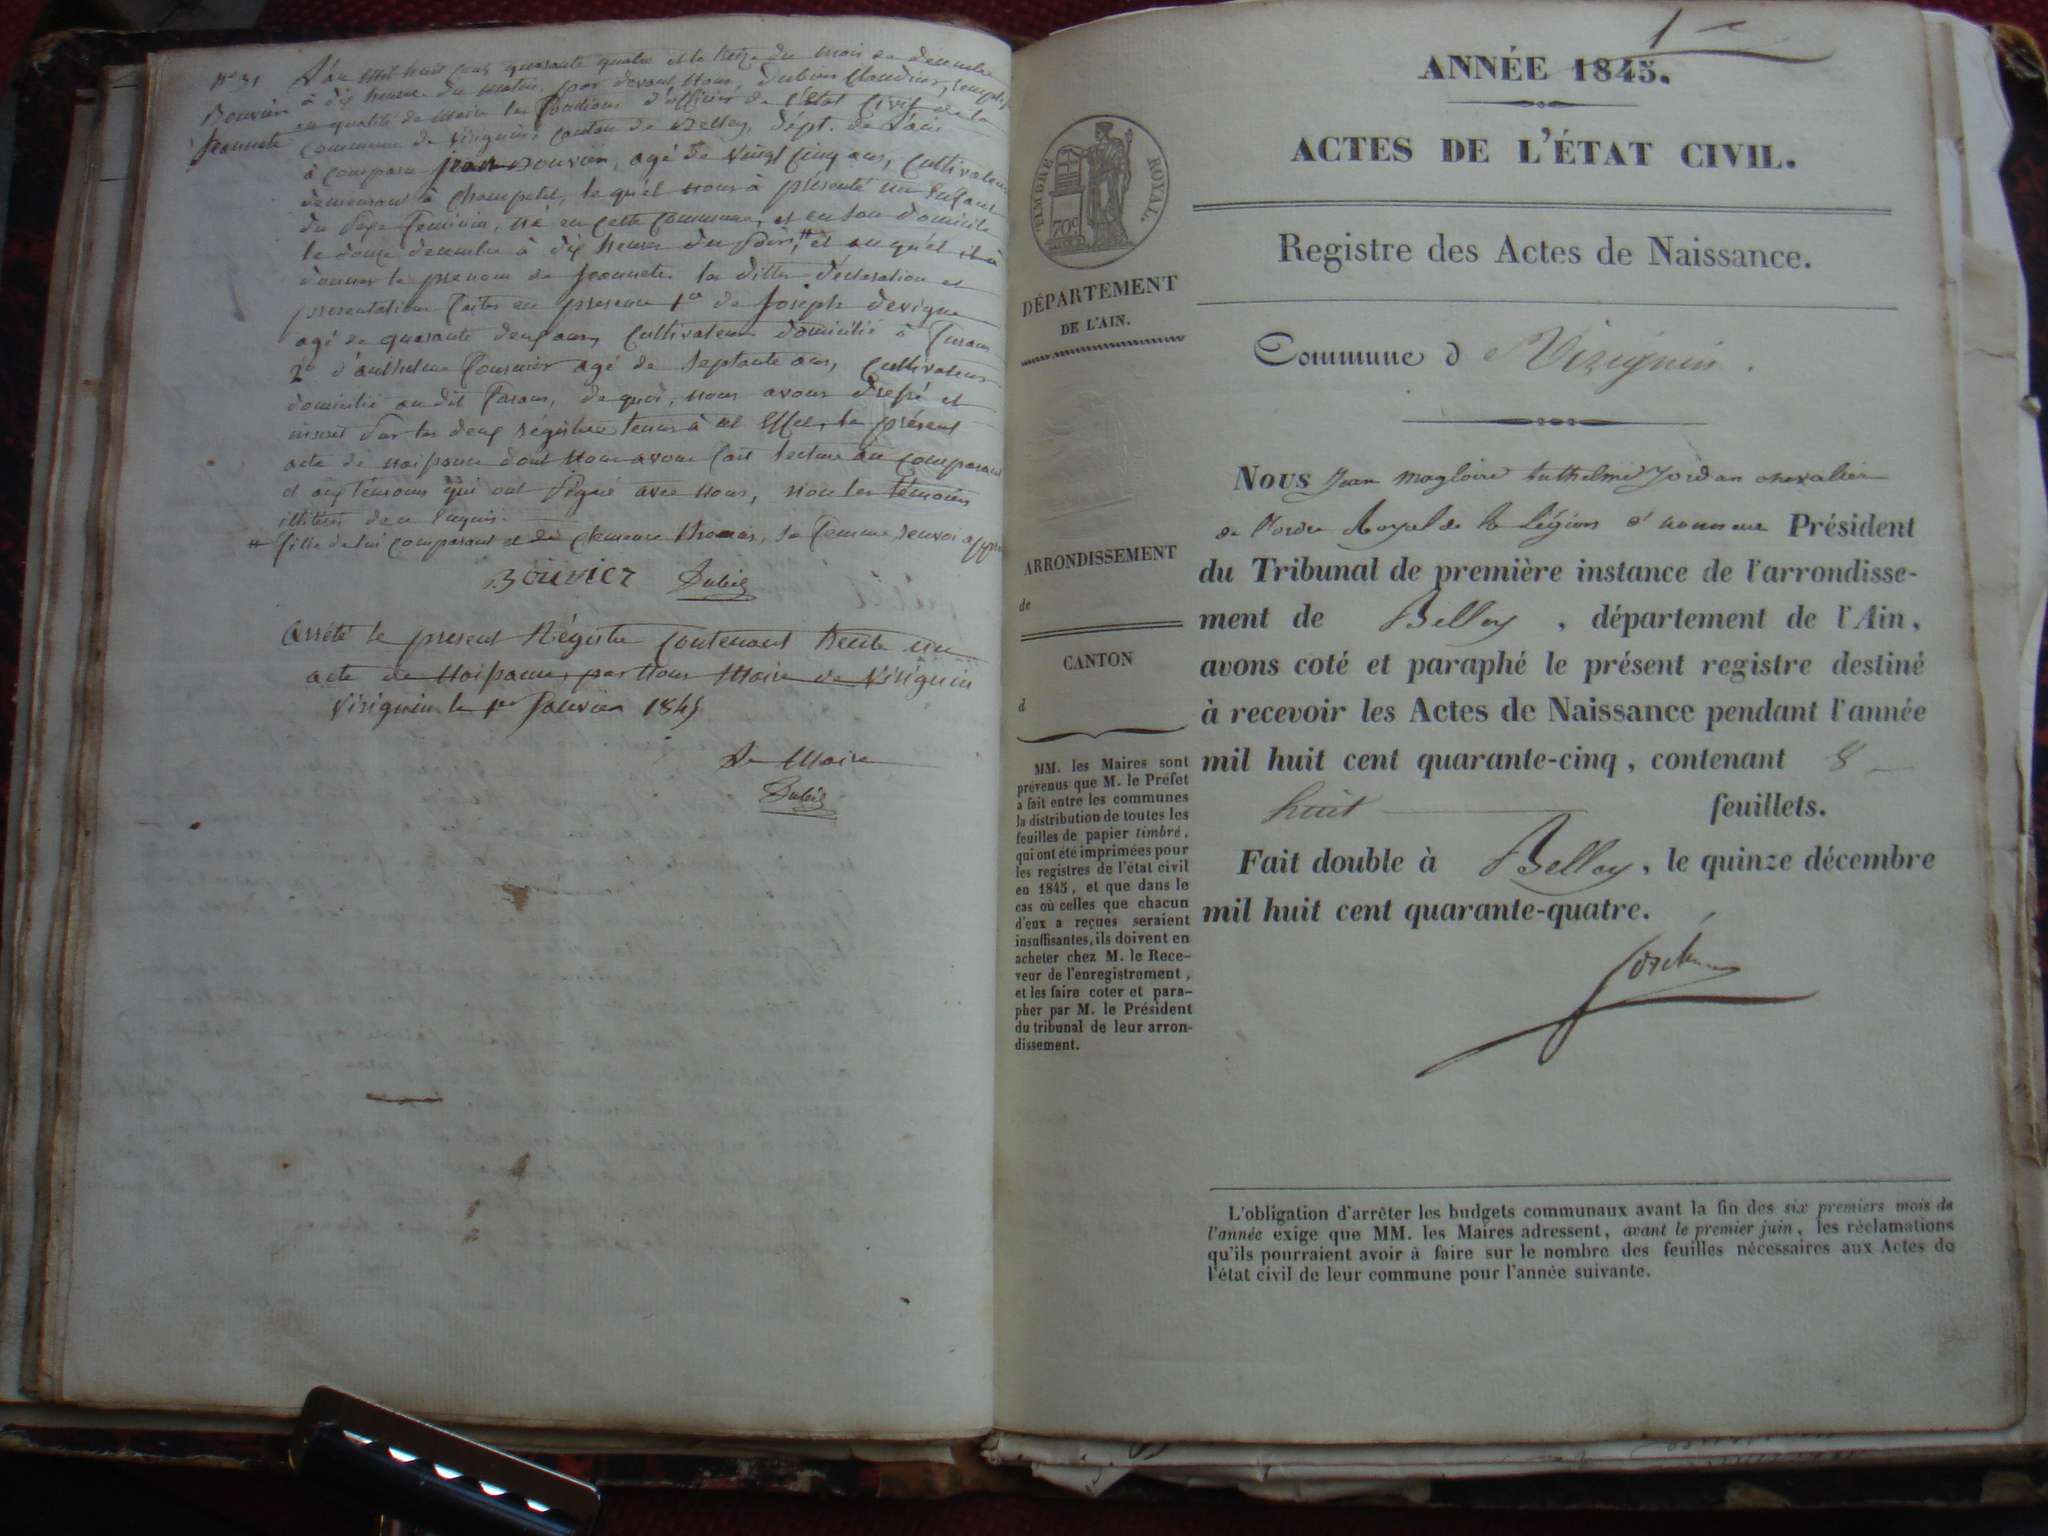 N° 31
Bouvier
Jeannete
L'an Mil huit cent quarante quatre et le treize du mois de decembre
à dix heures du matin, par devant Nous, Dubois Claudius,
en qualité de Maire les fonctions d'officier de l'état Civil de la
Commune de Virignin, Canton de Belley, dépt. de L'ain
à comparu jean Bouvier, agé de vingt cinq ans, Cultivateur
demeurant à Champetel, lequel nous à présenté un Enfant
du Sexe feminin, né en cette Commune, et en son domicile
le douze decembre à dix heures du Soir, # et auquel il à
donner le prenom de Jeannete. la ditte déclaration et
presentation faites en presence 1° de Joseph devigne
agé de quarante deux ans, Cultivateur domicilié à
2° d'anthelme fournier agé de Septante ans, Cultivateur
domicilié au dit de quoi, nous avons dressé et
inscrit Sur les deux régistres tenus à cet Effet, le présent
acte de naissance dont Nous avons fait lecture au comparant
et aux témoins qui ont Signé avec Nous, non les témoins
illitérés de ce Enquis.
# fille de lui comparant et de clemence thomas, sa femme, renvoi
Bouvier
Arrêté le present Régistre Contenant trente un
acte de Naissance, par Nous Maire de Virignin
Virignin le 1er Janvier 1845
Le Maire
1
ANNÉE 1845.
ACTES DE L'ÉTAT CIVIL.
TIMBRE ROYAL.
70c
Registre des Actes de Naissance.
DÉPARTEMENT
DE L'AIN.
Commune de Virignin.
Nous Jean Magloire Anthelme Jordan chevalier
de l'ordre Royal de la Légion d'honneur Président
ARRONDISSEMENT
de
du Tribunal de première instance de l'arrondisse-
ment de Belley, département de l'Ain,
CANTON
d
avons coté et paraphé le présent registre destiné
à recevoir les Actes de Naissance pendant l'année
mil huit cent quarante-cinq, contenant 8
huit feuillets.
Fait double à Belley, le quinze décembre
mil huit cent quarante-quatre.
Jordan
MM. les Maires sont
prévenus que M. le Préfet
a fait entre les communes
la distribution de toutes les
feuilles de papier timbré,
qui ont été imprimées pour
les registres de l'état civil
en 1845, et que dans le
cas où celles que chacun
d'eux a reçues seraient
insuffisantes, ils doivent en
acheter chez M. le Rece-
veur de l'enregistrement,
et les faire coter et para-
pher par M. le Président
du tribunal de leur arron-
dissement.
L'obligation d'arrêter les budgets communaux avant la fin des six premiers mois de
l'année exige que MM. les Maires adressent, avant le premier juin, les réclamations
qu'ils pourraient avoir à faire sur le nombre des feuilles nécessaires aux Actes de
l'état civil de leur commune pour l'année suivante.